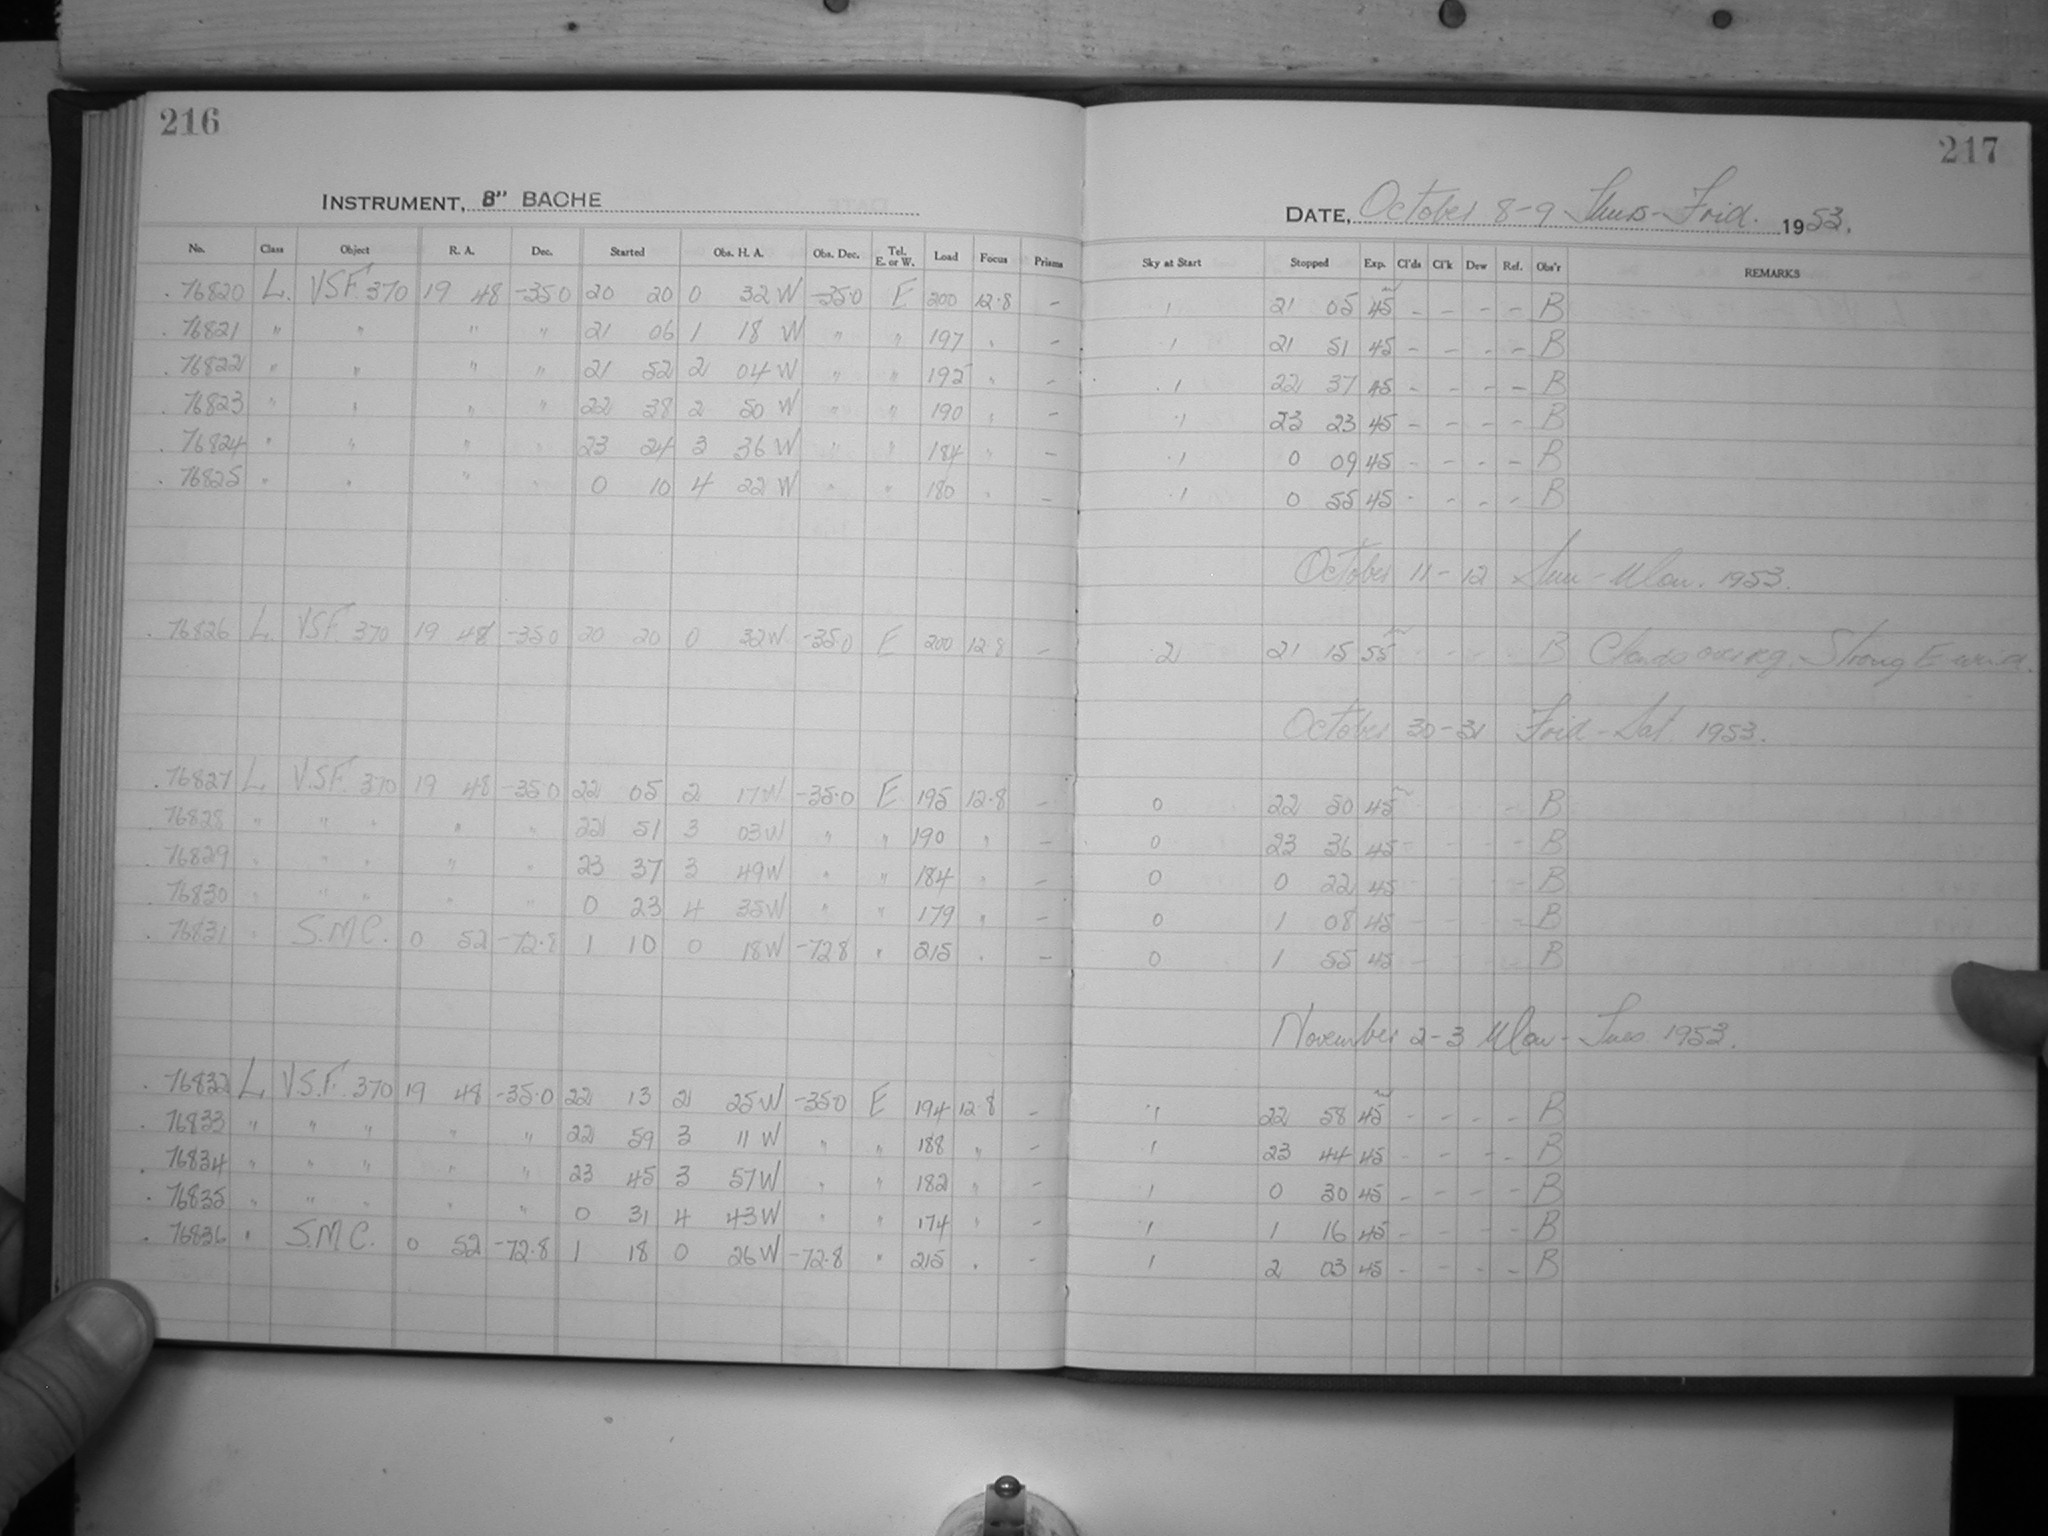 216
INSTRUMENT, 8" BACHE
No. Class Object R. A. Dec. Started Obs. H. A. Obs. Dec. Tel. E. or W. Load Focus Prisms
76820 L. VSF. 370 19 48 -35.0 20 20 0 32 W -35.0 E 200 12.8 -
76821 " " " " 21 06 1 18 W " " 197 " -
76822 " " " " 21 52 2 04 W " " 195 " -
76823 " " " " 22 38 2 50 W " " 190 " -
76824 " " " " 23 24 3 36 W " " 184 " -
76825 " " " " 0 10 4 22 W " " 180 " -
76826 L. VSF. 370 19 48 -35.0 20 20 0 32W -35.0 E 200 12.8 -
76827 L. V.S.F. 370 19 48 -35.0 22 05 2 17W -35.0 E 195 12.8 -
76828 " " " " " 22 51 3 03W " " 190 " -
76829 " " " " " 23 37 3 49W " " 184 " -
76830 " " " " " 0 23 4 35W " " 179 " -
76831 " S.M.C. 0 52 -72.8 1 10 0 18W -72.8 " 215 " -
76832 L. V.S.F. 370 19 48 -35.0 22 13 2 25W -35.0 E 194 12.8 -
76833 " " " " " 22 59 3 11 W " " 188 " -
76834 " " " " " 23 45 3 57W " " 182 " -
76835 " " " " " 0 31 4 43W " " 174 " -
76836 " S.M.C. 0 52 -72.8 1 18 0 26W -72.8 " 215 " -
217
DATE, October 8-9 Thurs-Frid. 1953.
Sky at Start Stopped Exp. Cl'ds Cl'k Dew Ref. Obs'r REMARKS
1 21 05 45m - - - - B
1 21 51 45 - - - - B
1 22 37 45 - - - - B
1 23 23 45 - - - - B
1 0 09 45 - - - - B
1 0 55 45 - - - - B
October 11-12 Sun-Mon. 1953.
2 21 15 55m - - - - B Clouds Strong E wind.
October 30-31 Frid-Sat. 1953.
0 22 50 45m - - - - B
0 23 36 45 - - - - B
0 0 22 45 - - - - B
0 1 08 45 - - - - B
0 1 55 45 - - - - B
November 2-3 Mon-Tues 1953.
1 22 58 45m - - - - B
1 23 44 45 - - - - B
1 0 30 45 - - - - B
1 1 16 45 - - - - B
1 2 03 45 - - - - B